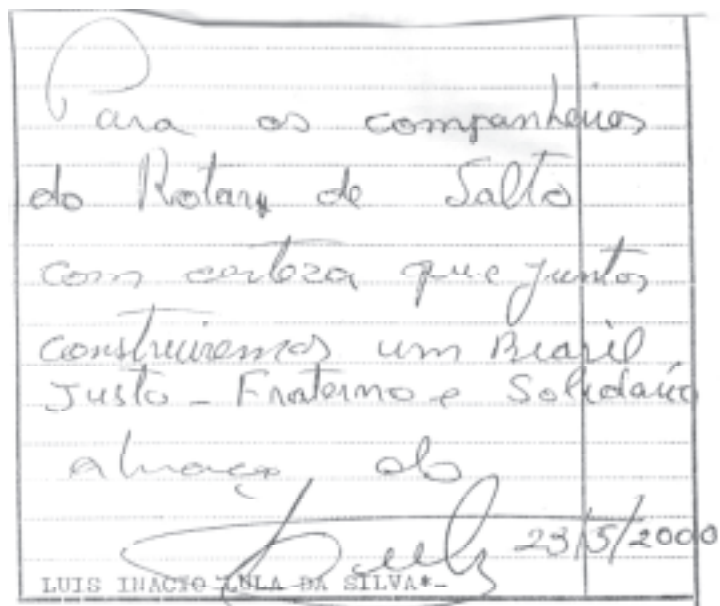 Para os companheiros
do Rotary de Salto
com certeza que juntos
construiremos um Brasil
Justo - Fraterno e Solidário
abraço do
Lula 23/5/2000
LUIS INACIO LULA DA SILVA*-